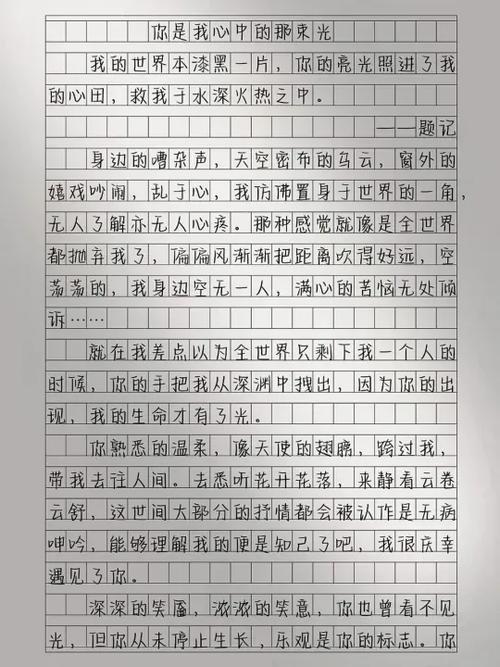 你是我心中的那束光
我的世界本漆黑一片，你的亮光照进了我
的心田，救我于水深火热之中。
——题记
身边的嘈杂声，天空密布的乌云，窗外的
嬉戏吵闹，乱于心，我仿佛置身于世界的一角，
无人了解亦无人心疼。那种感觉就像是全世界
都抛弃我了，偏偏风渐渐把距离吹得好远，空
荡荡的，我身边空无一人，满心的苦恼无处倾
诉……
就在我差点以为全世界只剩下我一个人的
时候，你的手把我从深渊中拽出，因为你的出
现，我的生命才有了光。
你熟悉的温柔，像天使的翅膀，跨过我，
带我去往人间。去悉听花开花落，来静看云卷
云舒，这世间大部分的抒情都会被认作是无病
呻吟，能够理解我的便是知己了吧，我很庆幸
遇见了你。
深深的笑靥，浓浓的笑意，你也曾看不见
光，但你从未停止生长，乐观是你的标志。你